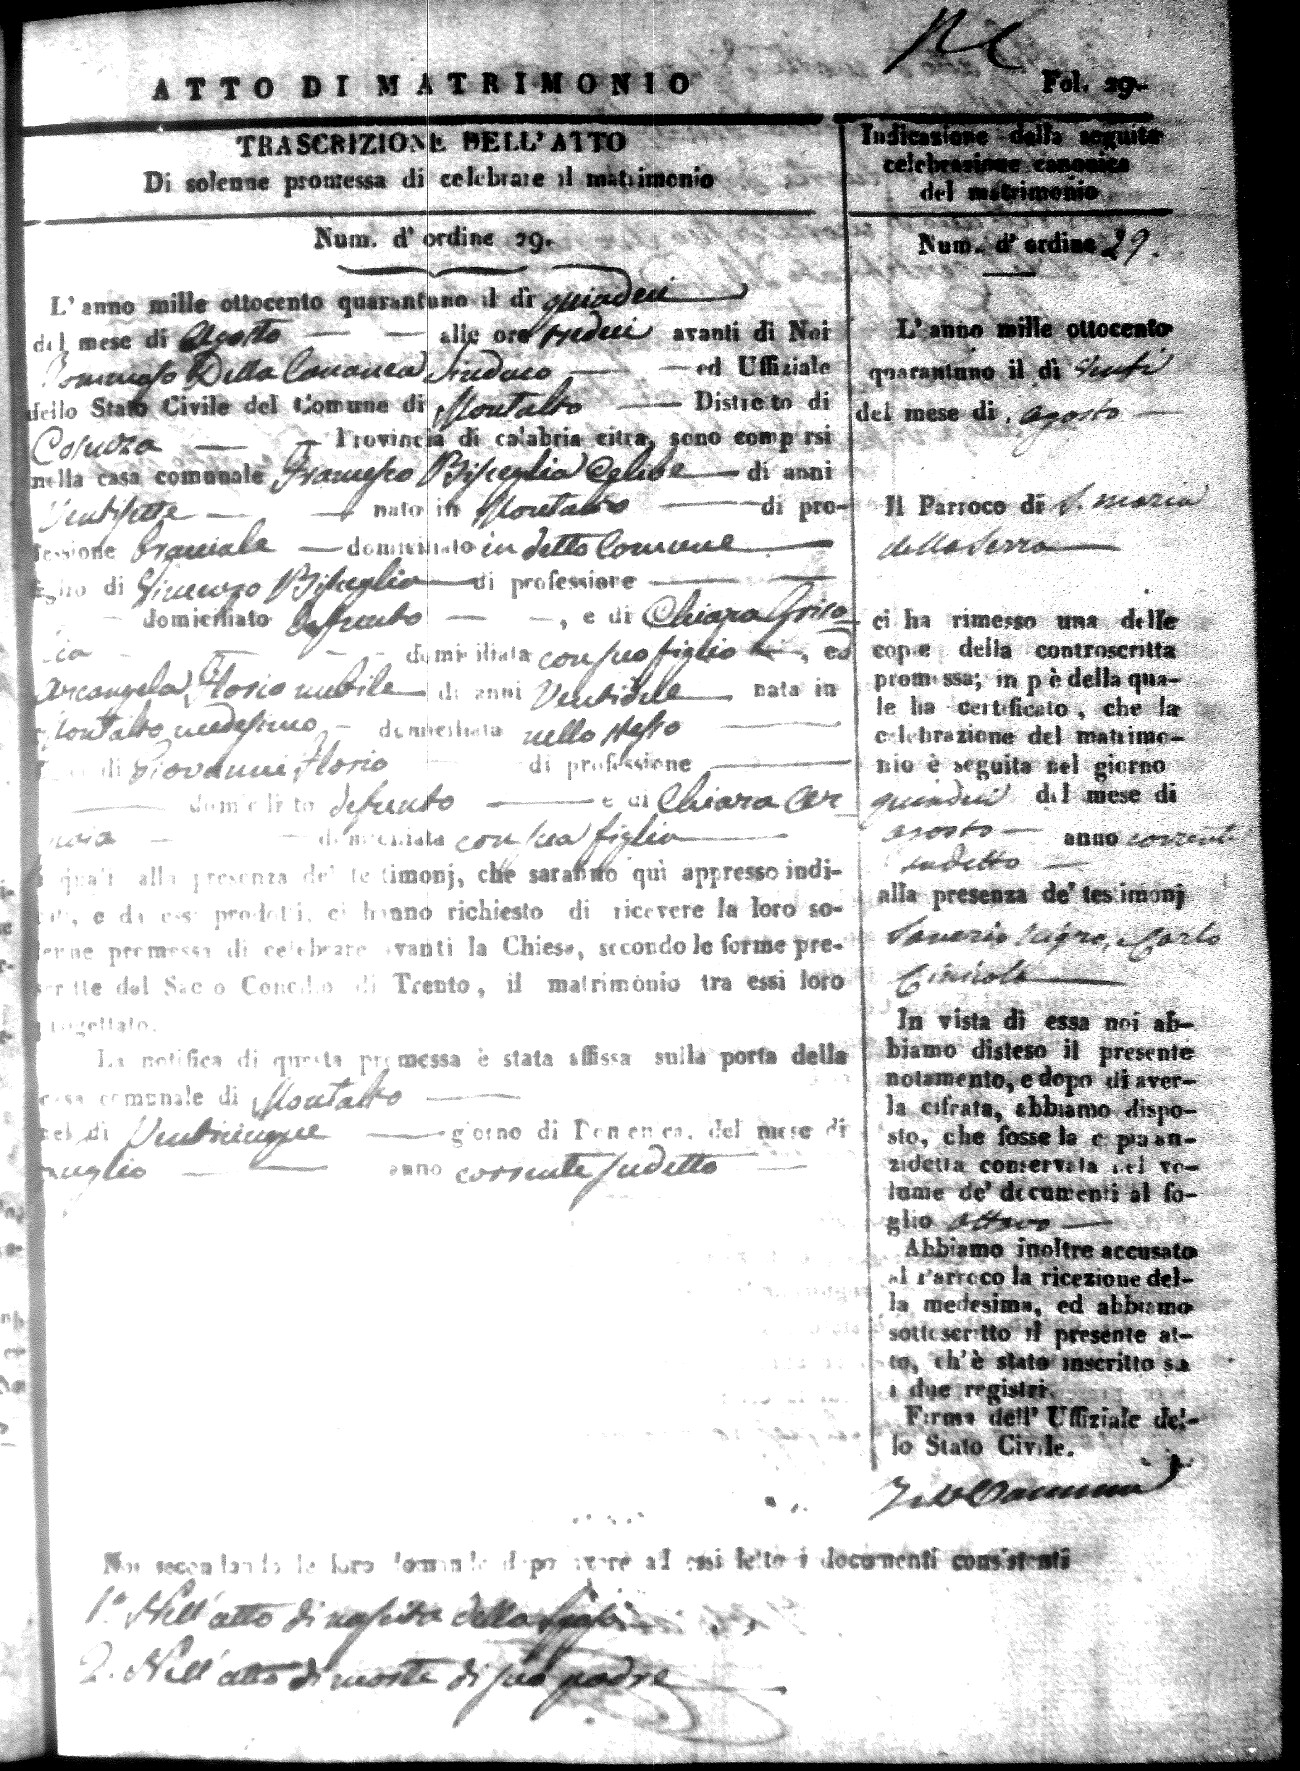 Fol. 29.
ATTO DI MATRIMONIO
TRASCRIZIONE DELL'ATTO
Di solenne promessa di celebrare il matrimonio
Num. d'ordine 29.
L'anno mille ottocento quarantuno il dì quindeci
del mese di Agosto alle ore tredeci avanti di Noi
Tommaso Della Cananea Sindaco ed Uffiziale
dello Stato Civile del Comune di Montalto Distretto di
Cosenza Provincia di calabria citra, sono comparsi
nella casa comunale Francesco Bisceglia Celibe di anni
Ventisette nato in Montalto di pro-
fessione Bracciale domiciliato in detto Comune
figlio di Vincenzo Bisceglia di professione
domiciliato defunto , e di Chiara
domiciliata con suo figlio , ed
Arcangela Florio nubile di anni nata in
Montalto medesimo domiciliata nello stesso
di Giovanni Florio di professione
domiciliato defunto e di Chiara
domiciliata con sua figlia
quali alla presenza dei testimonj, che saranno qui appresso indi-
cati, e da essi prodotti, ci hanno richiesto di ricevere la loro so-
lenne promessa di celebrare avanti la Chiesa, secondo le forme pre-
scritte dal Sacro Concilio di Trento, il matrimonio tra essi loro
progettato.
La notifica di questa promessa è stata affissa sulla porta della
casa comunale di Montalto
nel dì Venticinque giorno di Domenica, del mese di
luglio anno corrente sudetto
Indicazione della seguita
celebrazione canonica
del matrimonio
Num. d'ordine 29.
L'anno mille ottocento
quarantuno il dì Venti
del mese di agosto
Il Parroco di S. Maria
della Serra
ci ha rimesso una delle
copie della controscritta
promessa; in piè della qua-
le ha certificato, che la
celebrazione del matrimo-
nio è seguita nel giorno
quindeci del mese di
agosto anno corrente
sudetto
alla presenza de' testimonj
Saverio Nigro, e Carlo
In vista di essa noi ab-
biamo disteso il presente
notamento, e dopo di aver-
la cifrata, abbiamo dispo-
sto, che fosse la copia an-
zidetta conservata nel vo-
lume de' documenti al fo-
glio ottavo
Abbiamo inoltre accusato
al Parroco la ricezione del-
la medesima, ed abbiamo
sottoscritto il presente at-
to, ch'è stato inscritto su
i due registri.
Firma dell'Uffiziale del-
lo Stato Civile.
Noi secondando le loro domande dopo avere ad essi letto i documenti consistenti
1.° Nell'atto di nascita della
2. Nell'atto di morte di suo padre